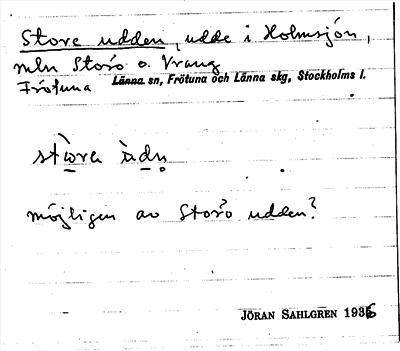 Store udden, udde i Holmsjön,
mln Storö o. Vrang
Frötuna Länna sn, Frötuna och Länna skg, Stockholms l.
möjligen av Storö udden?
JÖRAN SAHLGREN 1936